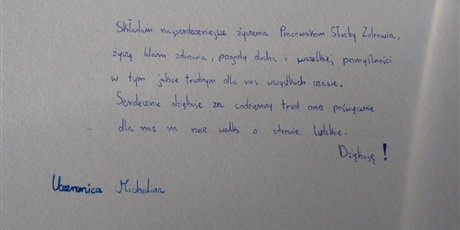 Składam najserdeczniejsze życzenia Pracownikom Służby Zdrowia,
życzę Wam zdrowia, pogody ducha i wszelkiej pomyślności
w tym jakże trudnym dla nas wszystkich czasie.
Serdecznie dziękuję za codzienny trud oraz poświęcenie
dla nas na rzecz walki o zdrowie ludzkie.
Dziękuję!
Uczennica Michalina